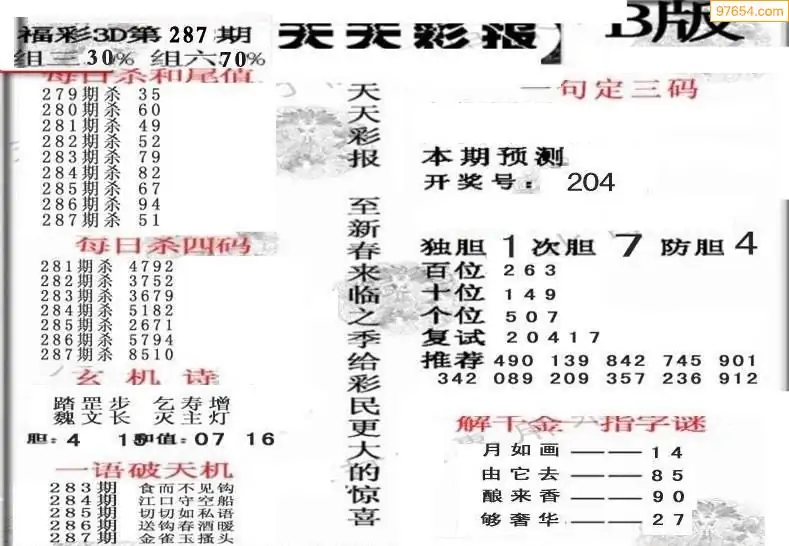 97654.com
福彩3D第 287 期
组三30% 组六70%
天天彩报 B版
每日杀和尾值
279期杀 35
280期杀 60
281期杀 49
282期杀 52
283期杀 79
284期杀 82
285期杀 67
286期杀 94
287期杀 51
每日杀四码
281期杀 4792
282期杀 3752
283期杀 3679
284期杀 5182
285期杀 2671
286期杀 5794
287期杀 8510
玄机诗
踏罡步 乞寿增
魏文长 灭主灯
胆:4 15和值:07 16
一语破天机
283期 食而不见钩
284期 江口守空船
285期 切切如私语
286期 送钩春酒暖
287期 金雀玉搔头
天天彩报 至新春来临之季给彩民更大的惊喜
一句定三码
本期预测
开奖号: 204
独胆 1 次胆 7 防胆 4
百位 263
十位 149
个位 507
复试 20417
推荐 490 139 842 745 901
342 089 209 357 236 912
解千金一指字谜
月如画——— 14
由它去——— 85
酿来香——— 90
够奢华——— 27